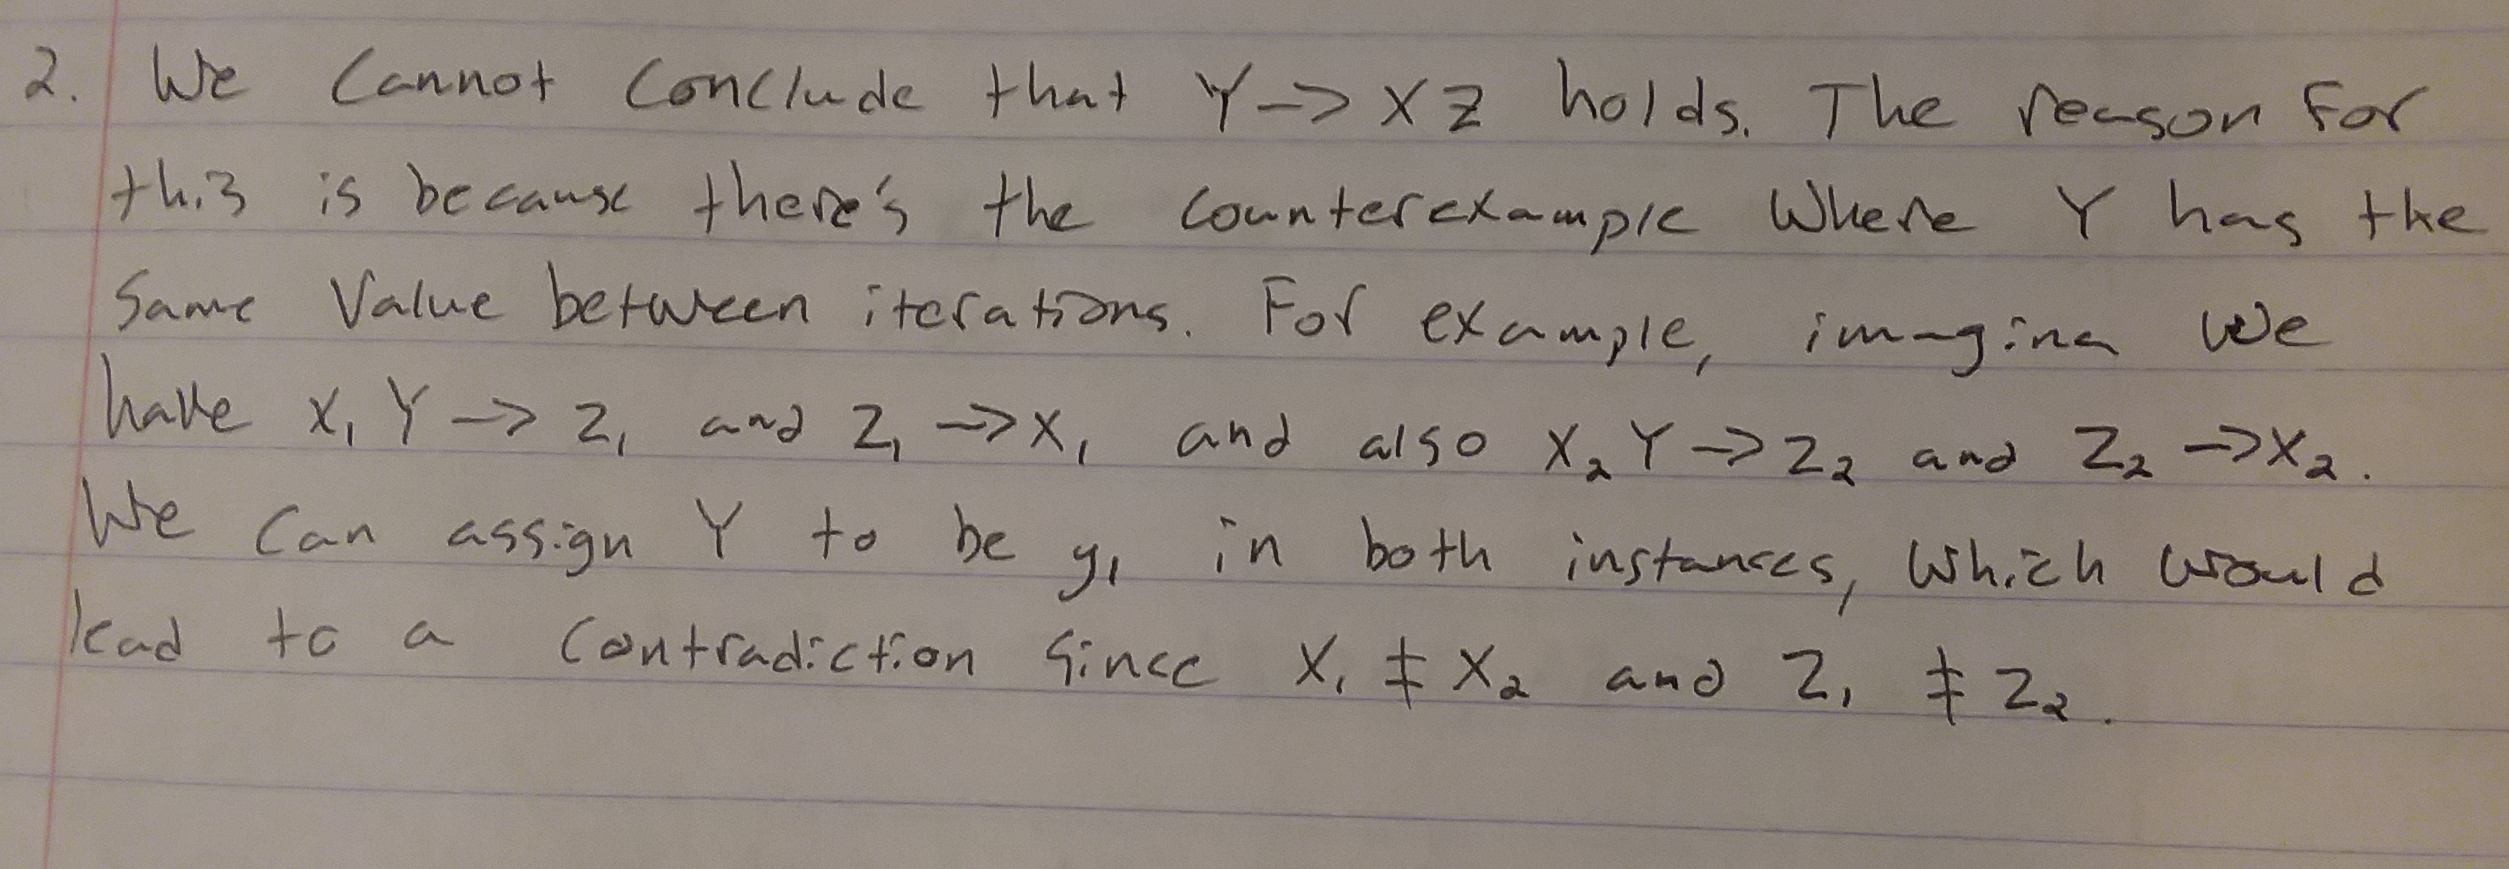 2. We cannot conclude that Y -> X Z holds. The reason for
this is because there's the counterexample where Y has the
same value between iterations. For example, imagine we
have X₁ Y -> Z₁ and Z₁ -> X₁ and also X₂ Y -> Z₂ and Z₂ -> X₂.
We can assign Y to be y₁ in both instances, which would
lead to a contradiction since X₁ ≠ X₂ and Z₁ ≠ Z₂.